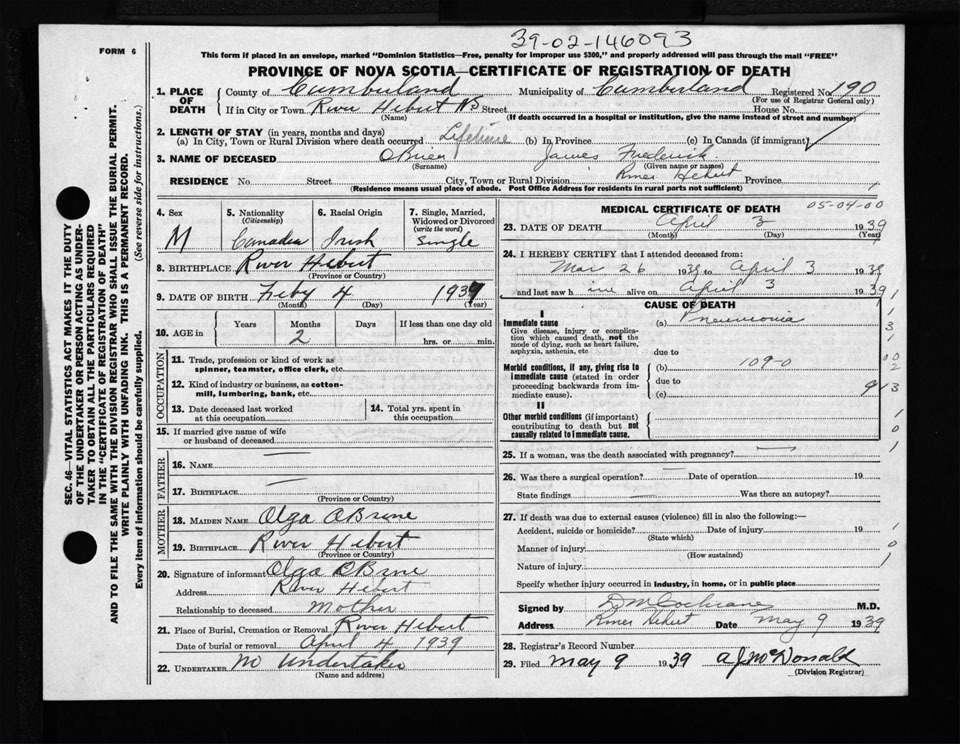 39-02-146093
FORM 6
This form if placed in an envelope, marked "Dominion Statistics—Free, penalty for improper use $300," and properly addressed will pass through the mail "FREE"
PROVINCE OF NOVA SCOTIA—CERTIFICATE OF REGISTRATION OF DEATH
1. PLACE OF DEATH County of Cumberland Municipality of Cumberland Registered No. 190
(For use of Registrar General only)
If in City or Town River Hebert NS Street House No.
(Name) (If death occurred in a hospital or institution, give the name instead of street and number)
2. LENGTH OF STAY (in years, months and days)
(a) In City, Town or Rural Division where death occurred Lifetime (b) In Province (c) In Canada (if immigrant)
3. NAME OF DECEASED OBrien James Frederick
(Surname) (Given name or names)
RESIDENCE No. Street City, Town or Rural Division River Hebert Province
(Residence means usual place of abode. Post Office Address for residents in rural parts not sufficient)
SEC. 46—VITAL STATISTICS ACT MAKES IT THE DUTY
OF THE UNDERTAKER OR PERSON ACTING AS UNDER-
TAKER TO OBTAIN ALL THE PARTICULARS REQUIRED
IN THE "CERTIFICATE OF REGISTRATION OF DEATH"
AND TO FILE THE SAME WITH THE DIVISION REGISTRAR WHO SHALL ISSUE THE BURIAL PERMIT.
WRITE PLAINLY WITH UNFADING INK. THIS IS A PERMANENT RECORD.
Every item of information should be carefully supplied. (See reverse side for instructions.)
4. Sex 5. Nationality (Citizenship) 6. Racial Origin 7. Single, Married, Widowed or Divorced (write the word)
M Canadia Irish Single
8. BIRTHPLACE River Hebert
(Province or Country)
9. DATE OF BIRTH Feby 4 1939
(Month) (Day) (Year)
10. AGE in Years Months Days If less than one day old
2 hrs. or min.
OCCUPATION
11. Trade, profession or kind of work as spinner, teamster, office clerk, etc.
12. Kind of industry or business, as cotton-mill, lumbering, bank, etc.
13. Date deceased last worked at this occupation 14. Total yrs. spent in this occupation
15. If married give name of wife or husband of deceased
FATHER
16. NAME —
17. BIRTHPLACE —
(Province or Country)
MOTHER
18. MAIDEN NAME Olga OBrine
19. BIRTHPLACE River Hebert
(Province or Country)
20. Signature of informant Olga OBrine
Address River Hebert
Relationship to deceased Mother
21. Place of Burial, Cremation or Removal River Hebert
Date of burial or removal April 4 1939
22. UNDERTAKER No Undertaker
(Name and address)
MEDICAL CERTIFICATE OF DEATH 05-04-00
23. DATE OF DEATH April 3 1939
(Month) (Day) (Year)
24. I HEREBY CERTIFY that I attended deceased from:
Mar 26 1939 to April 3 1939
and last saw h im alive on April 3 1939
CAUSE OF DEATH
I
Immediate cause (a) Pneumonia
Give disease, injury or complica-
tion which caused death, not the
mode of dying, such as heart failure,
asphyxia, asthenia, etc due to
Morbid conditions, if any, giving rise to (b) 109-0
immediate cause (stated in order due to
proceeding backwards from im- (c)
mediate cause).
II
Other morbid conditions (if important)
contributing to death but not
causally related to immediate cause.
25. If a woman, was the death associated with pregnancy? —
26. Was there a surgical operation? — Date of operation 19
State findings Was there an autopsy?
27. If death was due to external causes (violence) fill in also the following:—
Accident, suicide or homicide? Date of injury 19
(State which)
Manner of injury
(How sustained)
Nature of injury
Specify whether injury occurred in industry, in home, or in public place
Signed by DM Cochrane M.D.
Address River Hebert Date May 9 1939
28. Registrar's Record Number
29. Filed May 9 1939 A J McDonald
(Division Registrar)